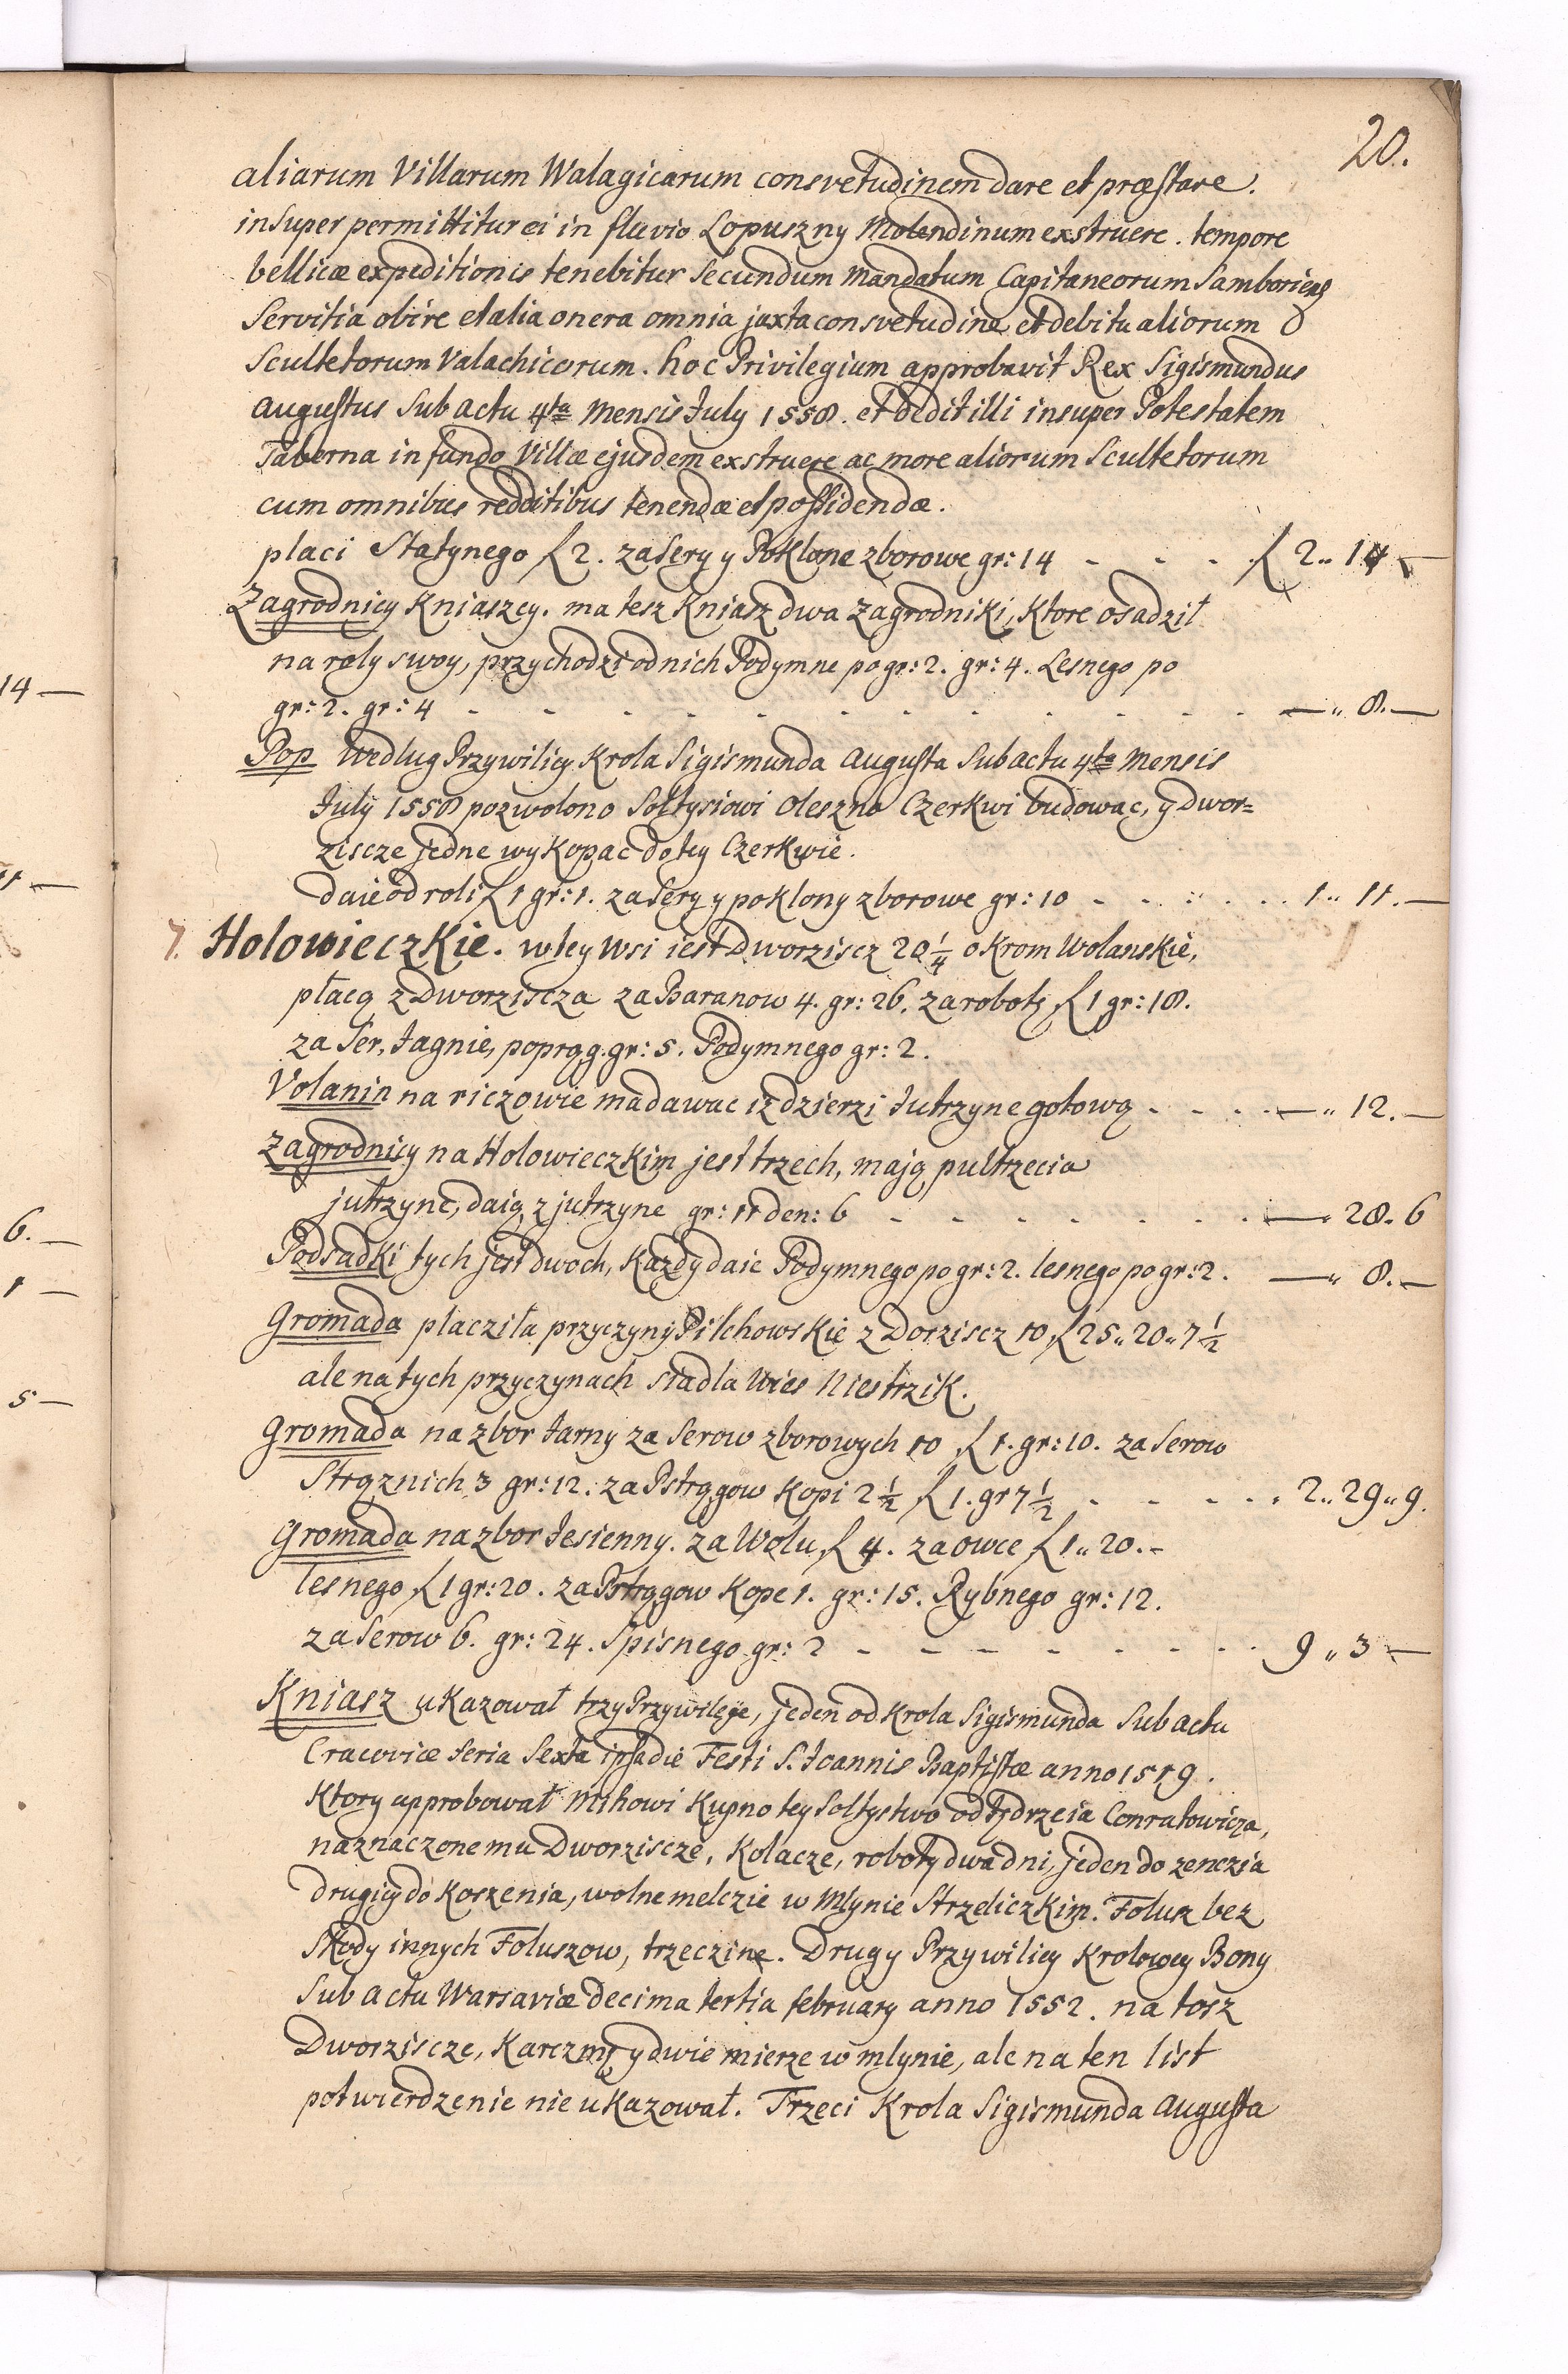 20.
aliarum Villarum Walagicarum consvetudinem dare et præstare.
insuper permittitur ei in fluvio Lopuszny Molendinum exstruere. tempore
bellicæ expeditionis tenebitur Secundum Mandatum Capitaneorum Samboriens
Servitia obire et alia onera omnia juxta consvetudine et debitu aliorum
Scultetorum Valachicorum. hoc Privilegium approbavit Rex Sigismundus
Augustus Sub actu 4ta Mensis July 1558. et dedit illi insuper Potestatem
Taberna in fundo Villæ ejusdem exstruere ac more aliorum Scultetorum
cum omnibus redditibus tenendæ et possidendæ.
placi Statynego ƒ 2. za Sery y Poklone zborowe gr: 14 - - - ƒ 2 „ 14 —
Zagrodnicy Kniaszcy. ma tesz Kniasz dwa Zagrodniki, Ktore osadził
na roly swoy, przychodzi od nich Podymne po gr: 2. gr: 4. Lesnego po
gr: 2. gr: 4 - - - - — „ 8. —
Pop wedlug Przywiliey Krola Sigismunda Augusta Sub actu 4ta Mensis
July 1558 pozwolono Sołtysiowi Oleszno Czerkwi budowac, y dwor=
ziscze jedne wykopac do tey Czerkwie.
daie od roli ƒ 1 gr: 1. za Sery y poklony zborowe gr: 10 - - - 1 „ 11. —
7. Holowieczkie. w tey Wsi iest Dworziscz 20 1/4 okrom Wolanskie,
płacą z Dworziscza za Baranow 4. gr: 26. za robotę ƒ 1 gr: 18.
za Ser, Jagnie, poprąg. gr: 5. Podymnego gr: 2.
Volanin na riczowie ma dawac iż dzierzi Jutrzyne gotową - - - — „ 12. —
Zagrodnicy na Holowieczkim jest trzech, mają pultrzecia
jutrzyne, daią z jutrzyne gr: 11 den: 6 - - - — „ 28. 6
Podsadki tych jest dwoch, Kazdy daie Podymnego po gr: 2. lesnego po gr: 2. — „ 8. —
Gromada placziła przyczyny Pilchowskie z Dorziscz 10 ƒ 25 „ 20 „ 7 1/2
ale na tych przyczynach siadla Wies Niestrzik.
Gromada na zbor Jarny za Serow zborowych 10 ƒ 1. gr: 10. za Serow
Strąznich 3 gr: 12. za Pstrągow Kopi 2 1/2 ƒ 1. gr 7 1/2 - - - 2 „ 29 „ 9.
Gromada na zbor Jesienny. za Wolu ƒ 4. za owce ƒ 1 „ 20. -
lesnego ƒ 1 gr: 20. za Pstrągow Kope 1. gr: 15. Rybnego gr: 12.
za Serow 6. gr: 24. Spisnego gr: 2 - - - 9 „ 3 —
Kniasz ukazował trzy Przywileje, jeden od Krola Sigismunda Sub actu
Cracoviæ feria Sexta ipsa die Festi S. Joannis Baptistæ anno 1519.
Ktory approbował Mihowi Kupno tey Soltystwo od Jędrzeia Conratowicza,
naznaczone mu Dworziscze, Kolacze, roboty dwa dni, jeden do zenczia
drugiy do Koszenia, wolne melczie w Mlynie Strzeliczkim. Folusz bez
Skody innych Foluszow, trzeczine. Drugy Przywiliey Krolowey Bony
Sub actu Warsaviæ decima tertia february anno 1552. na tosz
Dworziscze, Karczmę y dwie mierze w mlynie, ale na ten list
potwierdzenie nie ukazował. Trzeci Krola Sigismunda Augusta
14 —
11 —
6. —
1 —
5 —